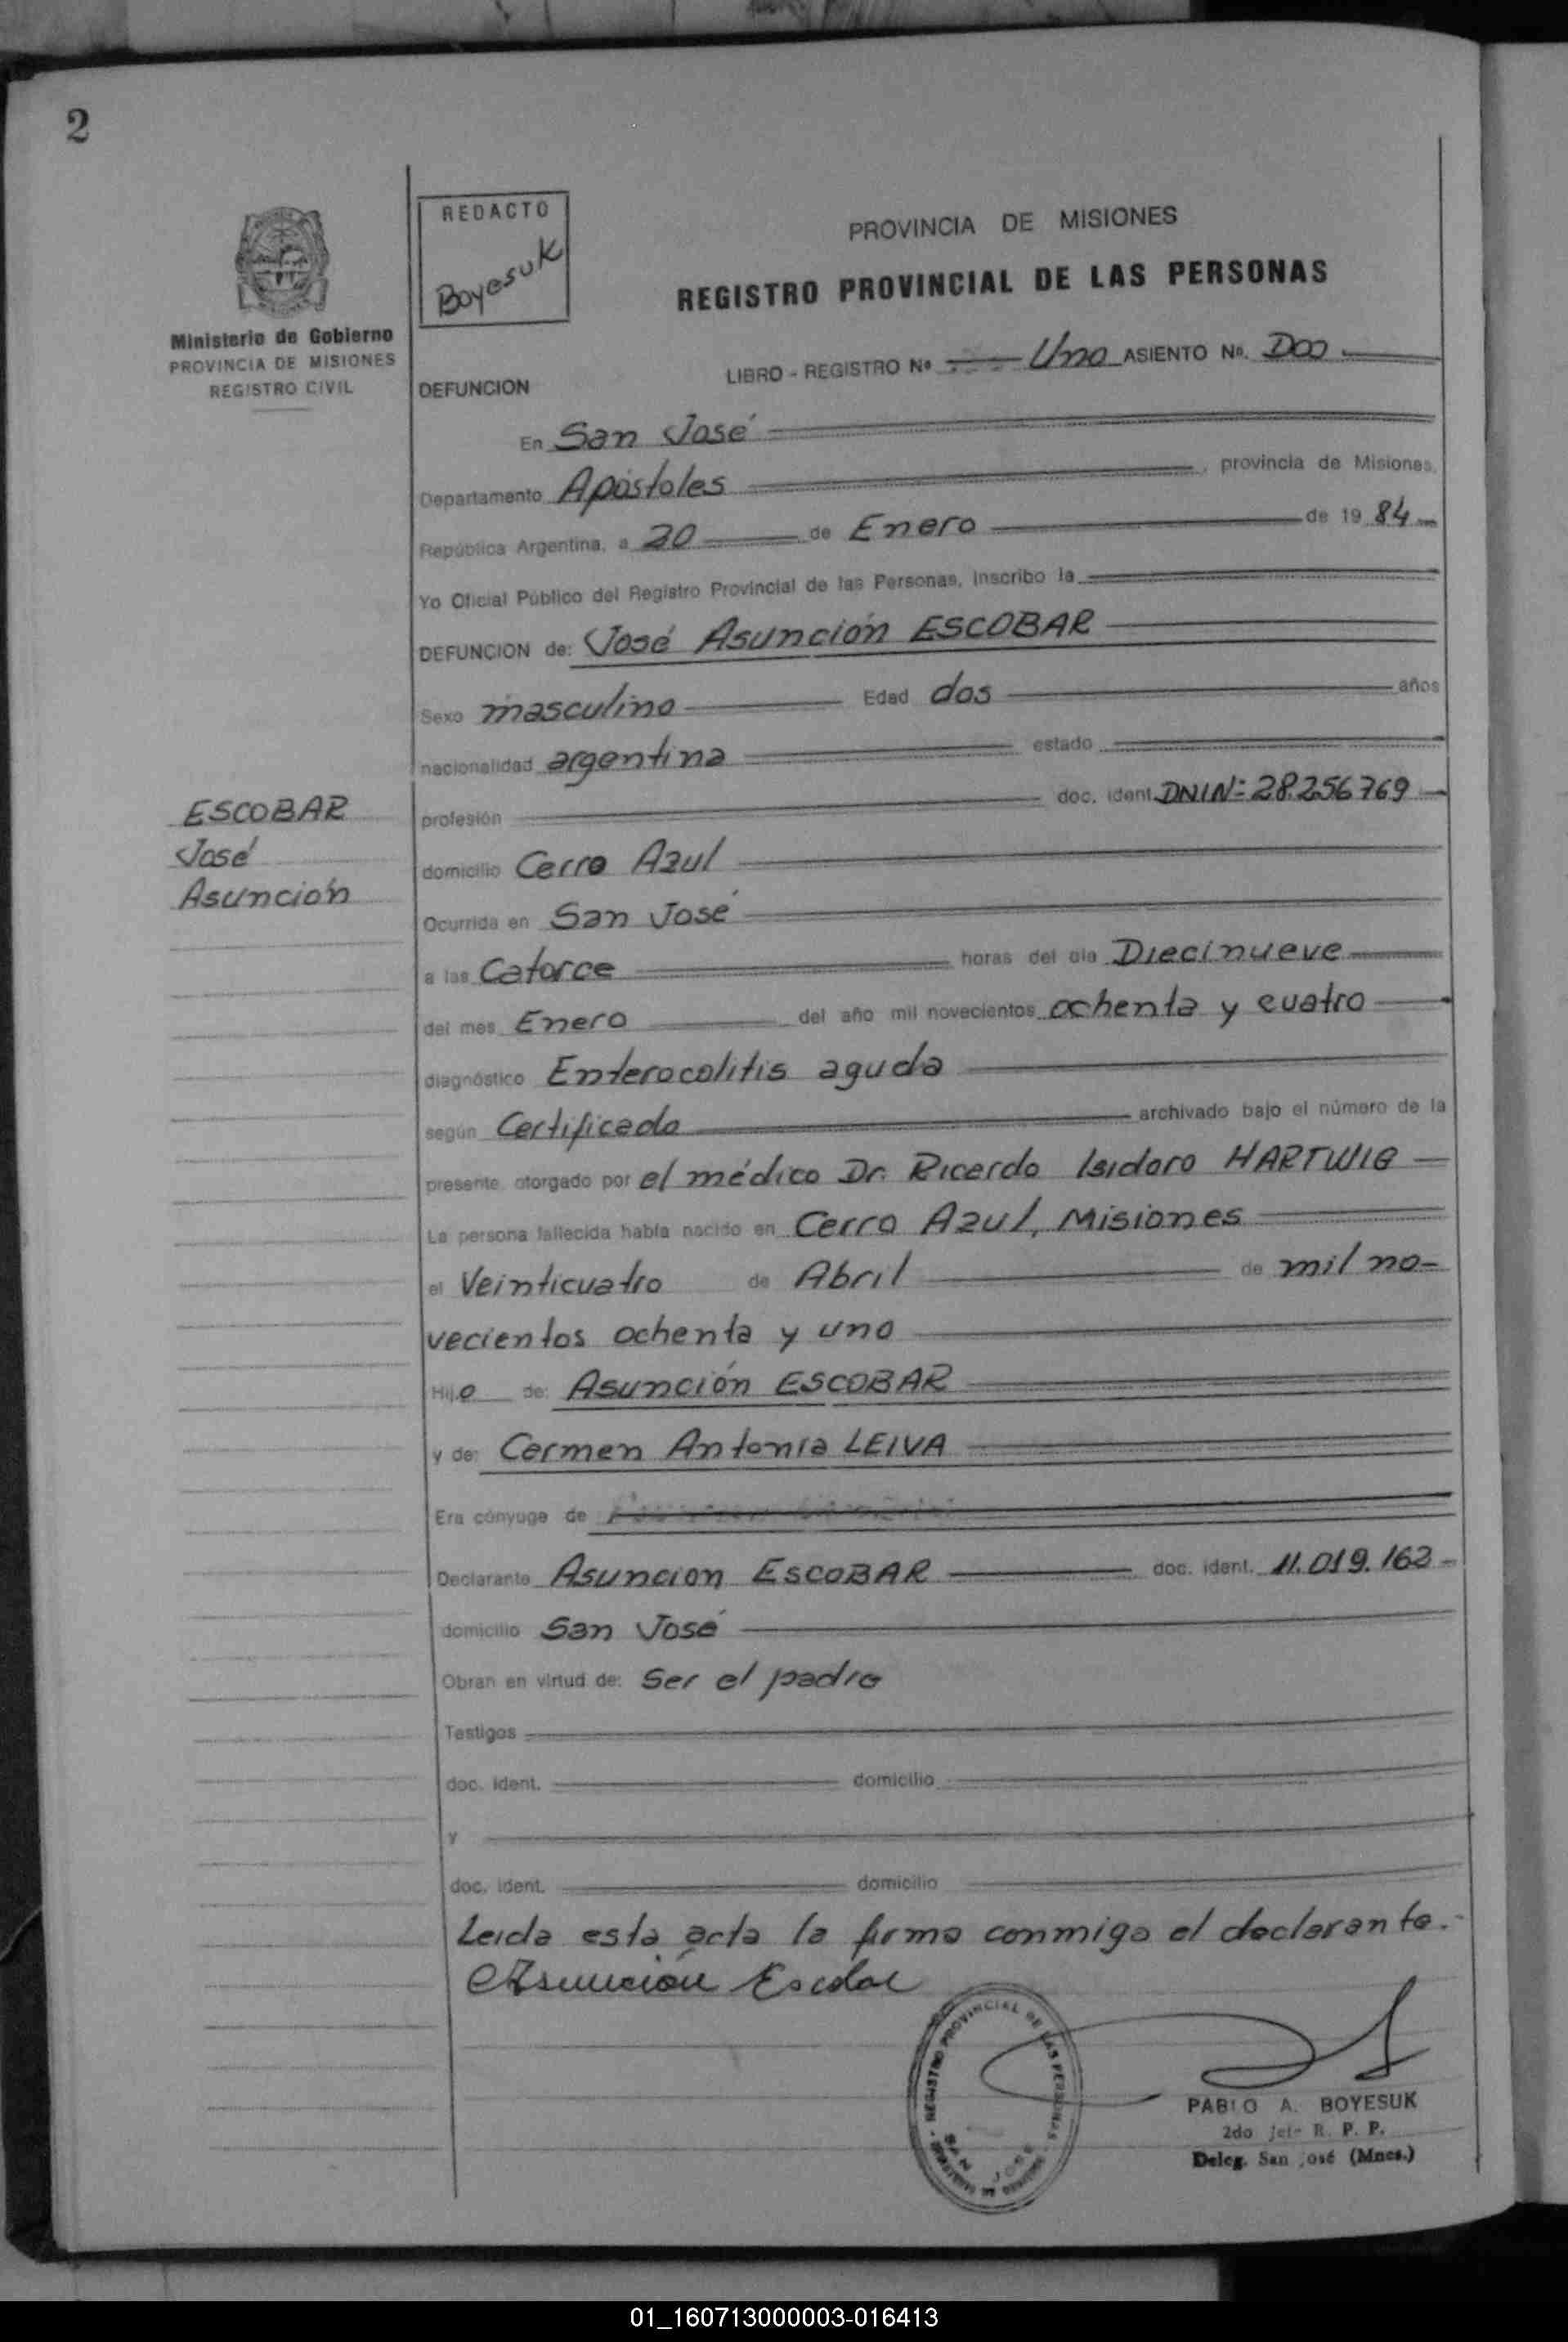 2
REDACTO
Boyesuk
Ministerio de Gobierno
PROVINCIA DE MISIONES
REGISTRO CIVIL
PROVINCIA DE MISIONES
REGISTRO PROVINCIAL DE LAS PERSONAS
LIBRO - REGISTRO Nº Uno ASIENTO Nº. Dos
DEFUNCION
En San José
Departamento Apóstoles, provincia de Misiones,
República Argentina, a 20 de Enero de 1984
Yo Oficial Público del Registro Provincial de las Personas, inscribo la
DEFUNCION de: José Asunción ESCOBAR
Sexo masculino Edad dos años
nacionalidad argentina estado
profesión doc. ident. DNIN= 28.256769
ESCOBAR
José
Asunción
domicilio Cerro Azul
Ocurrida en San José
a las Catorce horas del día Diecinueve
del mes Enero del año mil novecientos ochenta y cuatro
diagnóstico Enterocolitis aguda
según Certificado archivado bajo el número de la
presente otorgado por el médico Dr. Ricardo Isidoro HARTWIG
La persona fallecida había nacido en Cerro Azul, Misiones
el Veinticuatro de Abril de mil no-
vecientos ochenta y uno
Hijo de: Asunción ESCOBAR
y de: Carmen Antonia LEIVA
Era cónyuge de
Declarante Asuncion ESCOBAR doc. ident. 11.019.162
domicilio San José
Obran en virtud de: Ser el padre
Testigos
doc. ident. domicilio
y
doc. ident. domicilio
Leida esta acta la firma conmigo el declarante.-
Asunción Escobar
REGISTRO PROVINCIAL DE LAS PERSONAS
SAN JOSE
PABLO A. BOYESUK
2do Jefe R. P. P.
Deleg. San José (Mnes.)
01_160713000003-016413